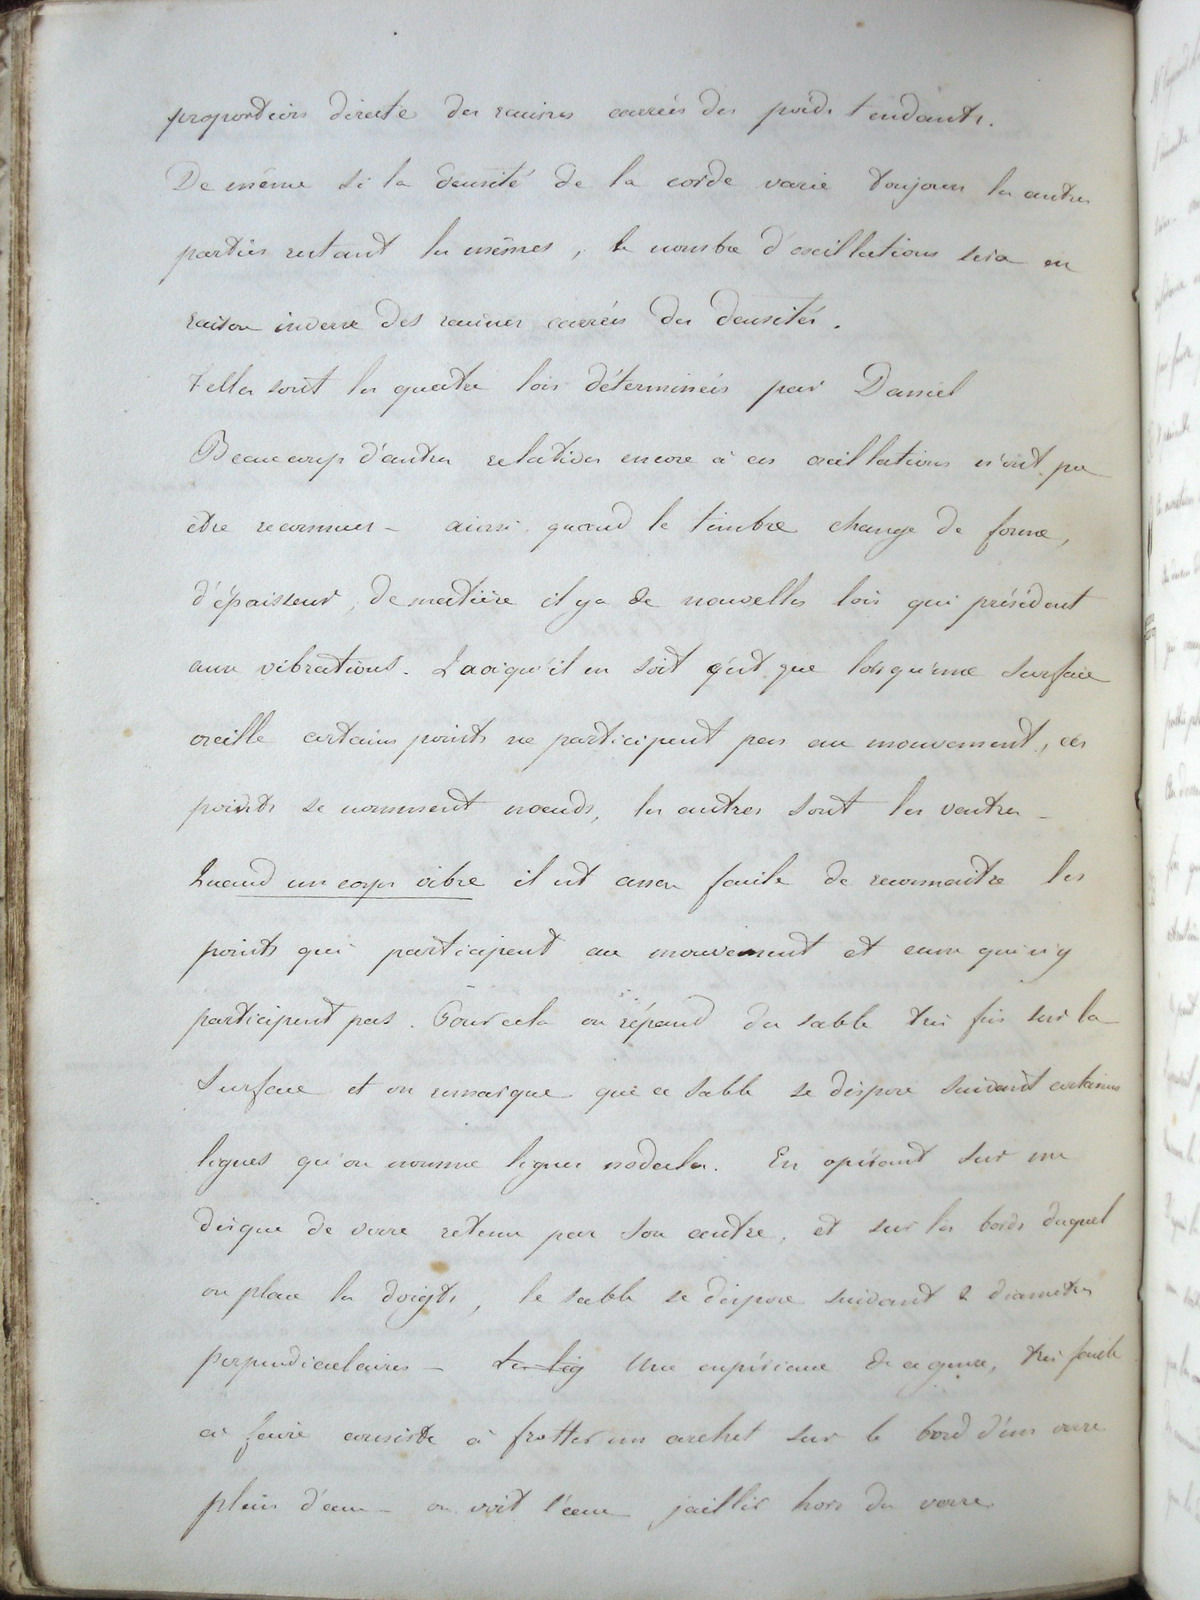 proportions directe des racines carrées des poids tendants.
De même si la densité de la corde varie toujours les autres
parties restant les mêmes, le nombre d'oscillations sera en
raison inverse des racines carrées des densités.
Telles sont les quatre lois déterminées par Daniel
Beaucoup d'autres relatives encore à ces oscillations n'ont pu
être reconnues – ainsi quand le timbre change de forme,
d'épaisseur, de matière il y a de nouvelles lois qui président
aux vibrations. Quoiqu'il en soit c'est que lorsqu'une surface
oscille certains points ne participent pas au mouvement, ces
points se nomment noeuds, les autres sont les ventres –
Quand un corps vibre il est assez facile de reconnaître les
points qui participent au mouvement et ceux qui n'y
participent pas. Pour cela on répand du sable très fin sur la
surface et on remarque que ce sable se dispose suivant certaines
lignes qu'on nomme lignes nodales. En opérant sur un
disque de verre retenu par son centre, et sur les bords duquel
on place les doigts, le sable se dispose suivant 2 diamètres
perpendiculaires – Les lig Une expérience de ce genre, très facile
à faire consiste à frotter un archet sur le bord d'un verre
plein d'eau – on voit l'eau jaillir hors du verre